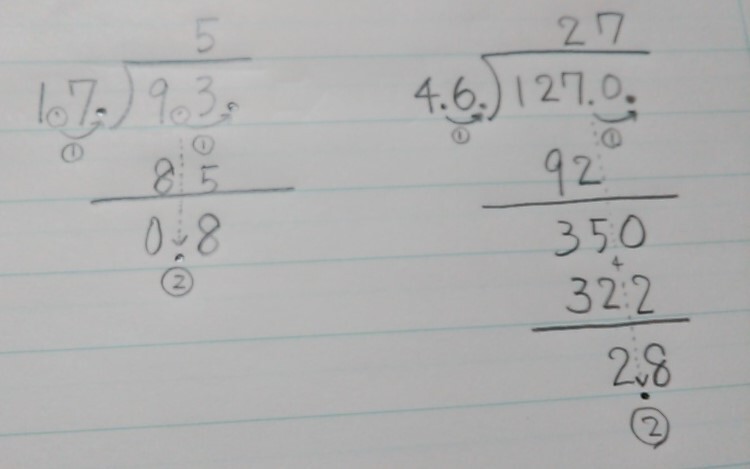 5
1.7.)9.3.
① ①
85
0.8
②
27
4.6.)127.0.
① ①
92
350
322
2.8
②